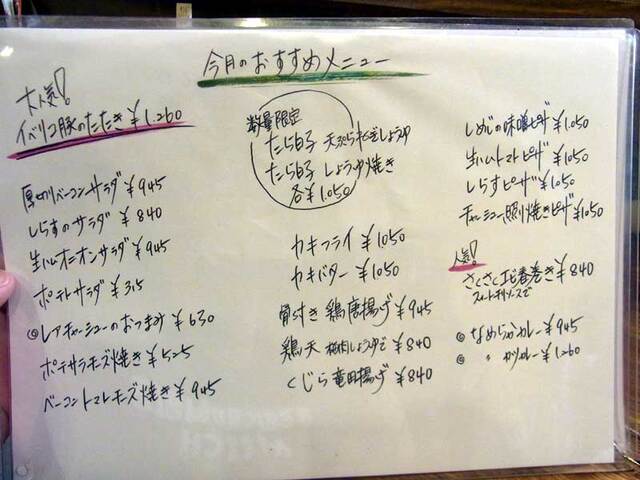 今月のおすすめメニュー
大人気!
イベリコ豚のたたき ¥1,260
厚切りベーコンサラダ ¥945
しらすのサラダ ¥840
生ハムオニオンサラダ ¥945
ポテトサラダ ¥315
◎レアチャーシューのおつまみ ¥630
ポテサラチーズ焼き ¥525
ベーコントマトチーズ焼き ¥945
数量限定
たら白子 天ぷら
たら白子 しょうゆ焼き
各¥1,050
カキフライ ¥1050
カキバター ¥1050
骨付き鶏唐揚げ ¥945
鶏天 梅肉しょうゆで ¥840
くじら竜田揚げ ¥840
しめじの味噌ピザ ¥1,050
生ハムトマトピザ ¥1050
しらすピザ ¥1050
チャーシュー照り焼きピザ ¥1050
人気!
さくさくエビ春巻き ¥840
スイートチリソースで
◎なめらかカレー ¥945
◎ 〃 カツカレー ¥1,260